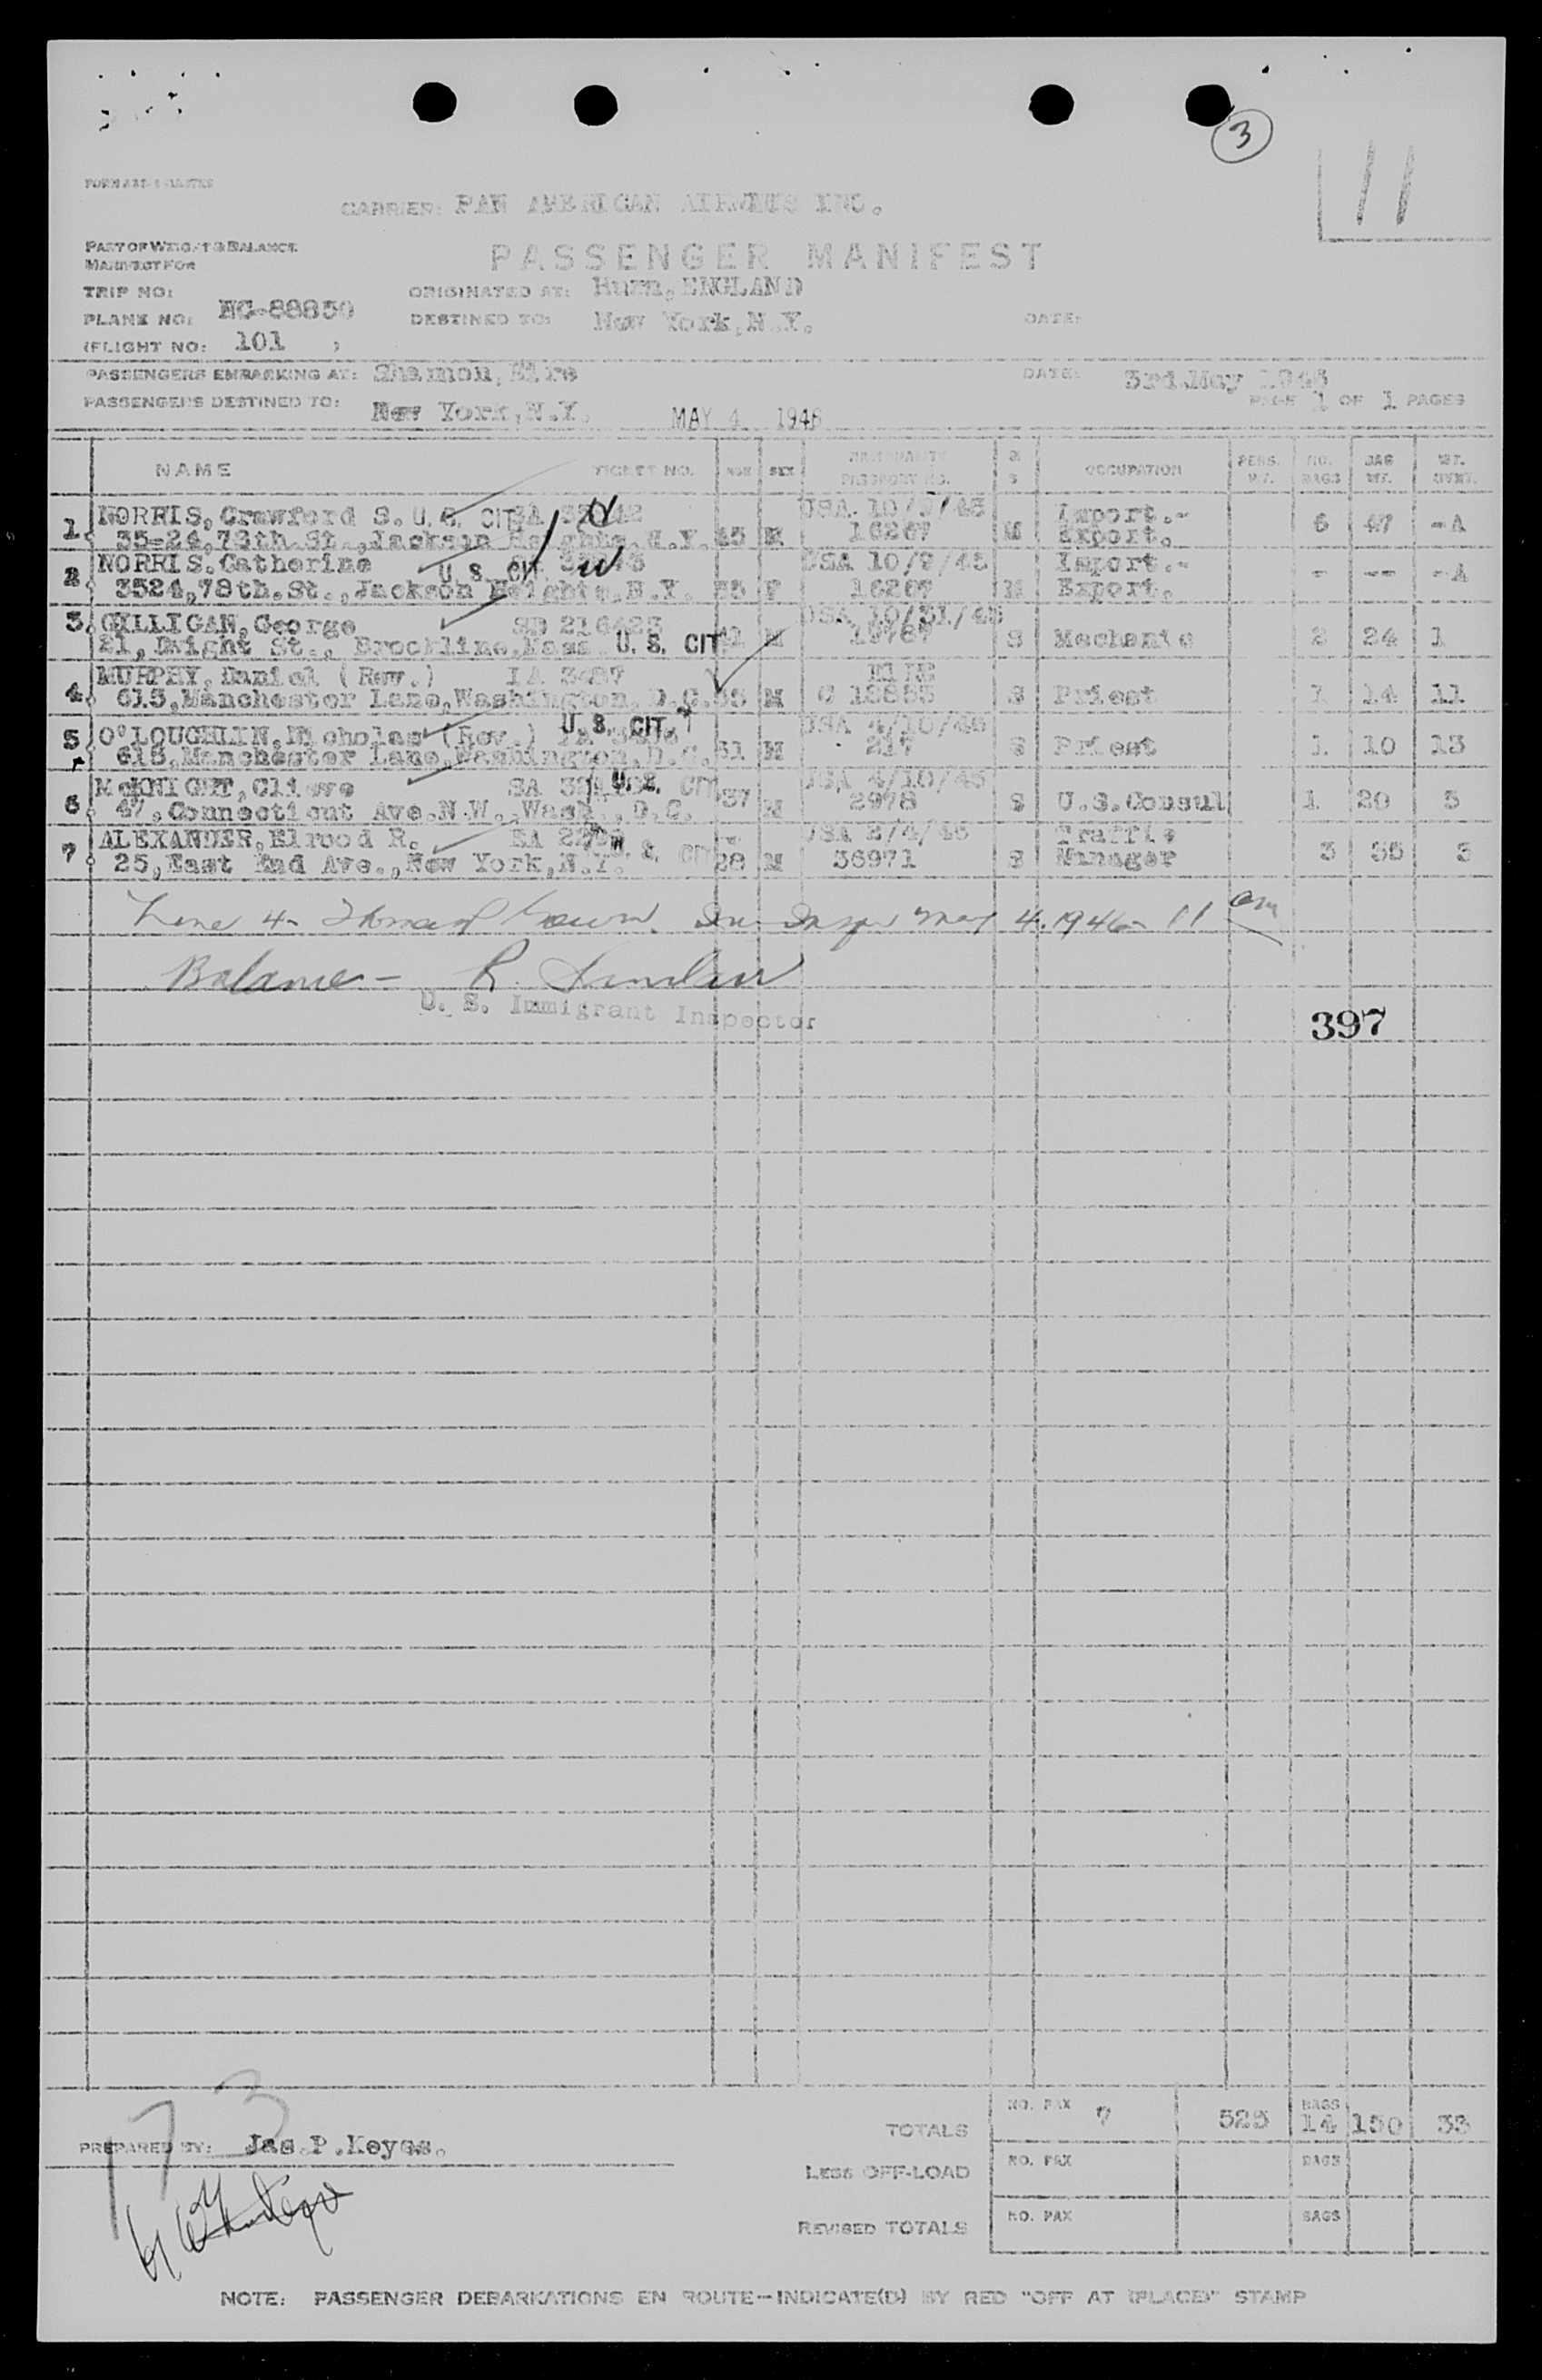 3
11
CARRIER: PAN AMERICAN AIRWAYS INC.
PART OF WEIGHT & BALANCE
MANIFEST FOR
PASSENGER MANIFEST
TRIP NO:
ORIGINATED AT: Hurn, ENGLAND
PLANE NO: NC-88850
DESTINED TO: New York, N.Y.
DATE:
(FLIGHT NO: 101 )
PASSENGERS EMBARKING AT: Shannon, Eire
DATE: 3rd.May 1946
PASSENGERS DESTINED TO: New York, N.Y. MAY 4 1946
PAGE 1 OF 1 PAGES
NAME TICKET NO. AGE SEX PASSPORT NO. M S OCCUPATION PERS. WT. NO. BAGS BAG WT.
1. NORRIS, Crawford S. U.S. CIT USA 10/9/45 Import.-
35-24, 78th.St., Jackson Heights, N.Y. 45 M 16267 M Export. 6 47 -A
2. NORRIS, Catherine U. S. CIT. USA 10/9/45 Import.-
3524, 78th.St., Jackson Heights, N.Y. 35 F 16267 M Export. - -- -A
3. GILLIGAN, George SD 216423 USA 10/31/45
21, Dwight St., Brookline, Mass. U. S. CIT. M S Mechanic 2 24 1
4. MURPHY, Daniel (Rev.) IA 3487 EIRE
615, Manchester Lane, Washington, D.C. M C S Priest 1 14 11
5. O'LOUGHLIN, Nicholas (Rev.) U. S. CIT. USA 4/10/46
615, Manchester Lane, Washington, D.C. 31 M 217 S Priest 1 10 13
6. McKNIGHT, Clieve SA U.S. CIT USA 4/10/45
47, Connecticut Ave. N.W., Wash., D.C. 37 M 2978 S U.S. Consul 1 20 5
7. ALEXANDER, Elrood R. U. S. CIT USA 2/4/46 Traffic
25, East End Ave., New York, N.Y. 28 M 36971 S Manager 3 35 3
Line 4- May 4. 1946- 11 am
Balance - R.
U. S. Immigrant Inspector
397
173
TOTALS NO. PAX 7 525 BAGS 14 150 33
PREPARED BY: Jas.P.Keyes.
LESS OFF-LOAD NO. PAX BAGS
REVISED TOTALS NO. PAX BAGS
NOTE: PASSENGER DEBARKATIONS EN ROUTE—INDICATE(D) BY RED "OFF AT (PLACE)" STAMP